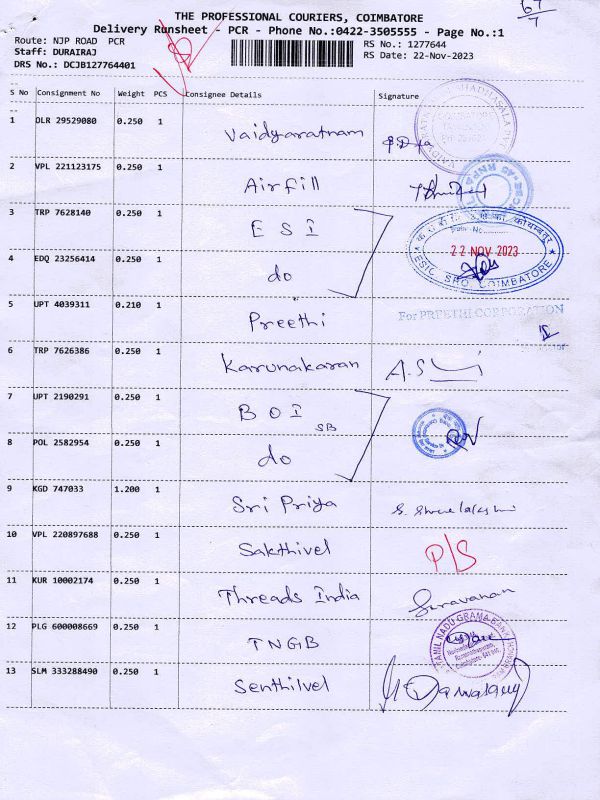 67/7
THE PROFESSIONAL COURIERS, COIMBATORE
Delivery Runsheet - PCR - Phone No.:0422-3505555 - Page No.:1
Route: NJP ROAD PCR
RS No.: 1277644
Staff: DURAIRAJ
RS Date: 22-Nov-2023
DRS No.: DCJB127764401
S No Consignment No Weight PCS Consignee Details Signature
1 DLR 29529080 0.250 1 Vaidyaratnam
2 VPL 221123175 0.250 1 Airfill
3 TRP 7628140 0.250 1 ESI
22 NOV 2023
ESIC SRO COIMBATORE
4 EDQ 23256414 0.250 1 do
5 UPT 4039311 0.210 1 Preethi
For PREETHI CORPORATION
6 TRP 7626386 0.250 1 Karunakaran
7 UPT 2190291 0.250 1 BOI SB
8 POL 2582954 0.250 1 do
9 KGD 747033 1.200 1 Sri Priya
10 VPL 220897688 0.250 1 Sakthivel P/S
11 KUR 10002174 0.250 1 Threads India Saravanan
12 PLG 600008669 0.250 1 TNGB
TAMIL NADU GRAMA BANK
13 SLM 333288490 0.250 1 Senthilvel